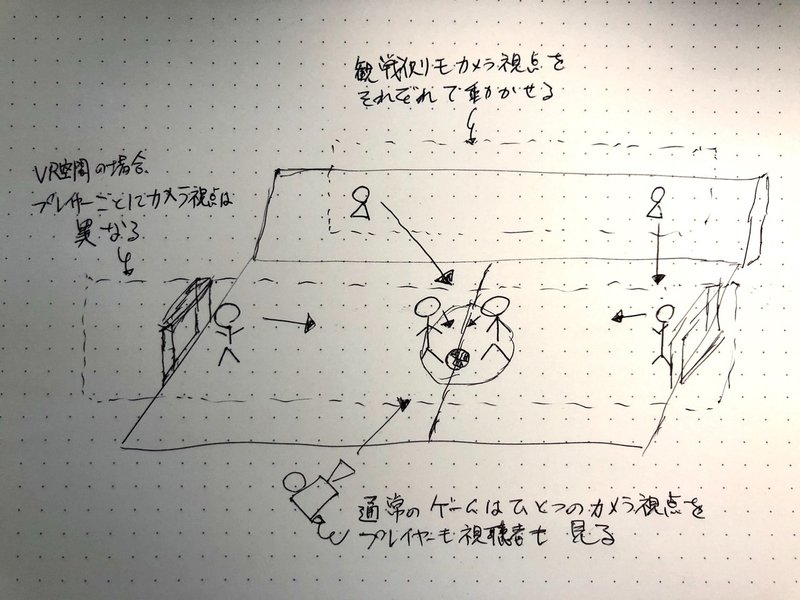 観戦側もカメラ視点を
それぞれで動かせる
VR空間の場合
プレイヤーごとにカメラ視点は
異なる
通常のゲームはひとつのカメラ視点を
プレイヤーも視聴者も見る